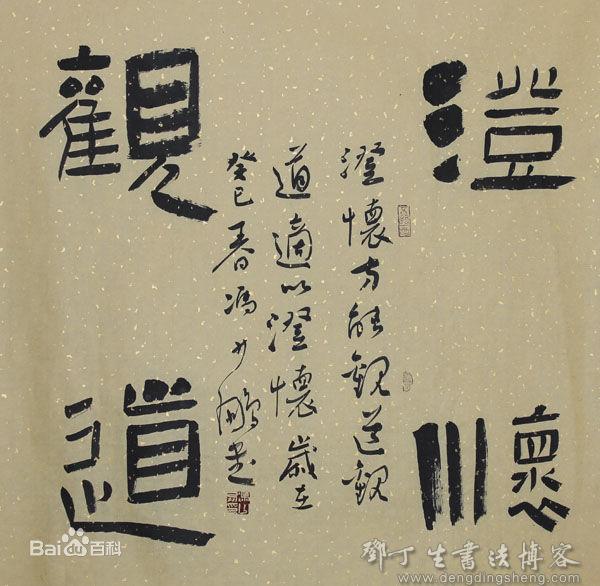 澄懷
觀道
澄懷方能觀道觀
道適以澄懷歲在
癸巳春馮少鵬書
Bai du 百科
鄧丁生書法博客
www.dengdingsheng.com